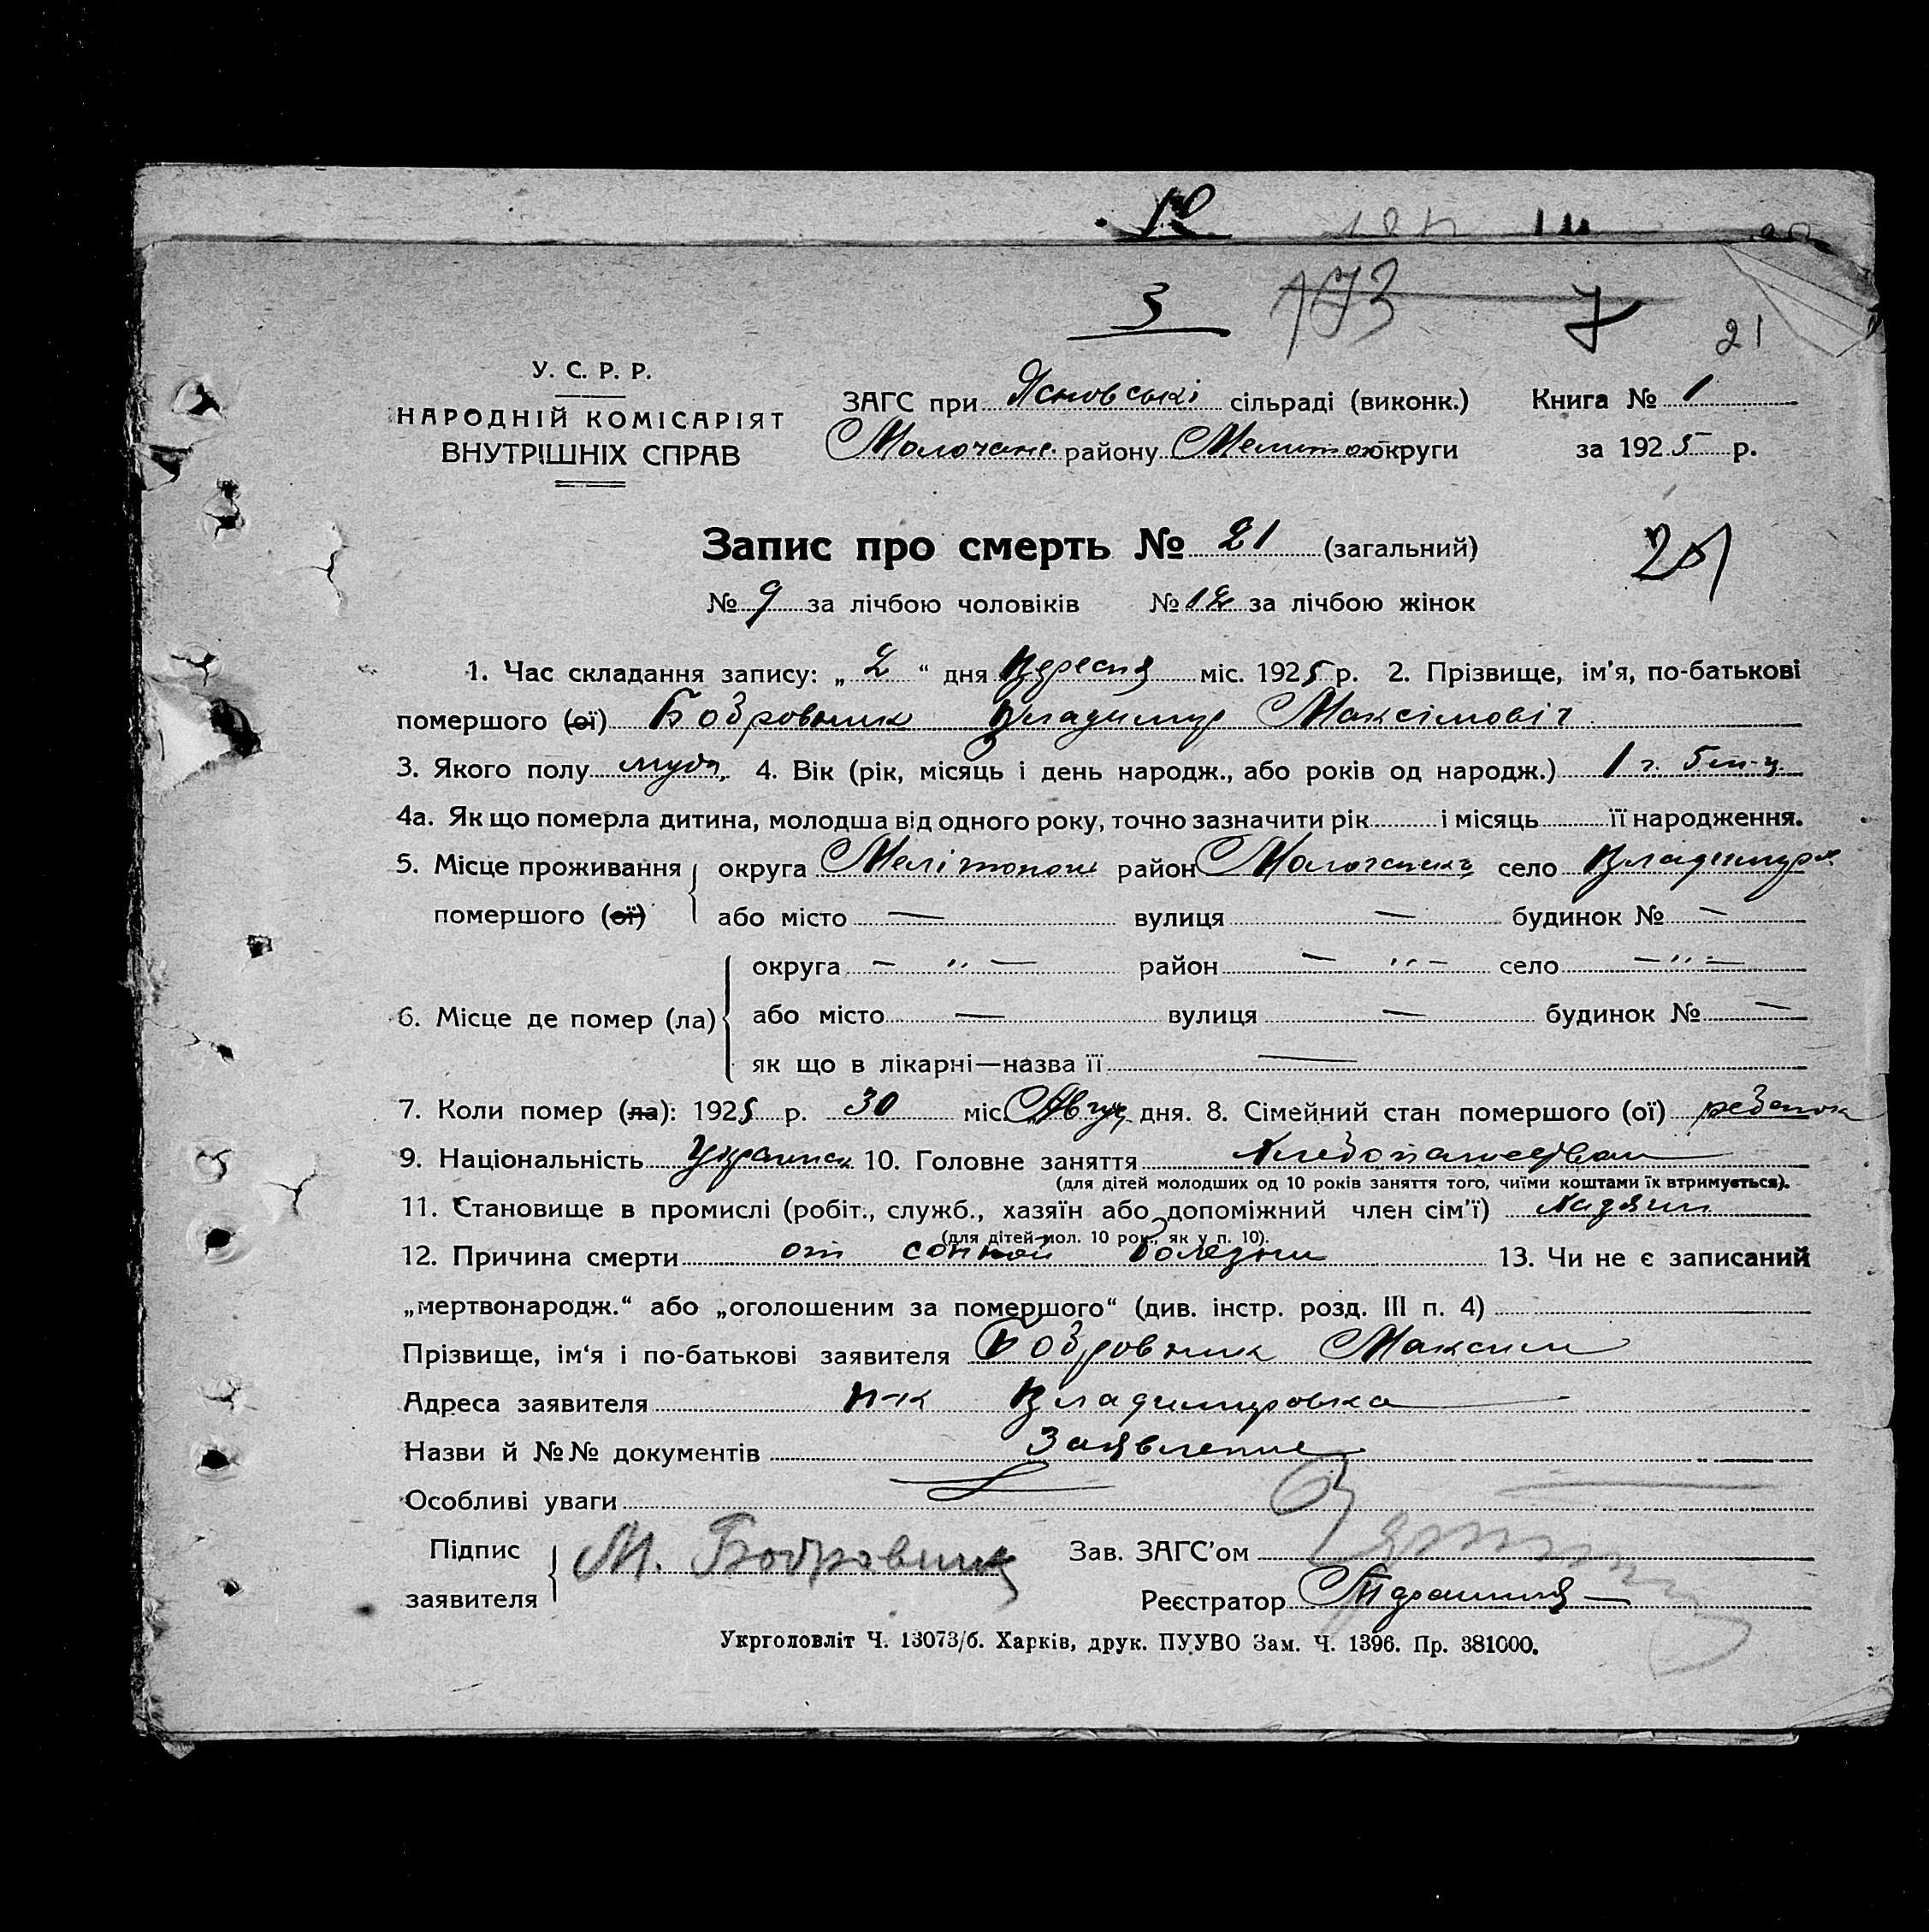 3 173 7
21
У. С. Р. Р.
НАРОДНІЙ КОМІСАРІЯТ
ВНУТРІШНІХ СПРАВ
ЗАГС при Ясновські сільраді (виконк.) Книга № 1
Молочанс. району Мелитоп округи за 1925 р.
Запис про смерть № 21 (загальний)
21
№ 9 за лічбою чоловіків № 12 за лічбою жінок
1. Час складання запису: „ 2 “ дня Вересня міс. 1925 р. 2. Прізвище, ім'я, по-батькові
помершого (ої) Бобровник Владимир Максімовіч
3. Якого полу муж. 4. Вік (рік, місяць і день народж., або років од народж.) 1 г. 5 м-ц.
4а. Як що померла дитина, молодша від одного року, точно зазначити рік і місяць її народження.
5. Місце проживання округа Мелітопол район Молочанск село Владимир
помершого (ої) або місто — вулиця — будинок № —
округа — „ — район — „ — село — „ —
6. Місце де помер (ла) або місто — вулиця — будинок № —
як що в лікарні—назва її —
7. Коли помер (ла): 1925 р. 30 міс. Авгус. дня. 8. Сімейний стан помершого (ої) ребенок
9. Національність Украинск 10. Головне заняття
(для дітей молодших од 10 років заняття того, чиїми коштами їх втримується).
11. Становище в промислі (робіт., служб., хазяїн або допоміжний член сім'ї) Хазяин
(для дітей мол. 10 рок., як у п. 10).
12. Причина смерти от сонной болезни 13. Чи не є записаний
„мертвонародж.“ або „оголошеним за помершого“ (див. інстр. розд. III п. 4)
Прізвище, ім'я і по-батькові заявителя Бобровник Максим
Адреса заявителя п-к Владимировка
Назви й №№ документів Заявление
Особливі уваги
Підпис М. Бобровник Зав. ЗАГС'ом
заявителя Реєстратор
Укрголовліт Ч. 13073/б. Харків, друк. ПУУВО Зам. Ч. 1396. Пр. 381000.